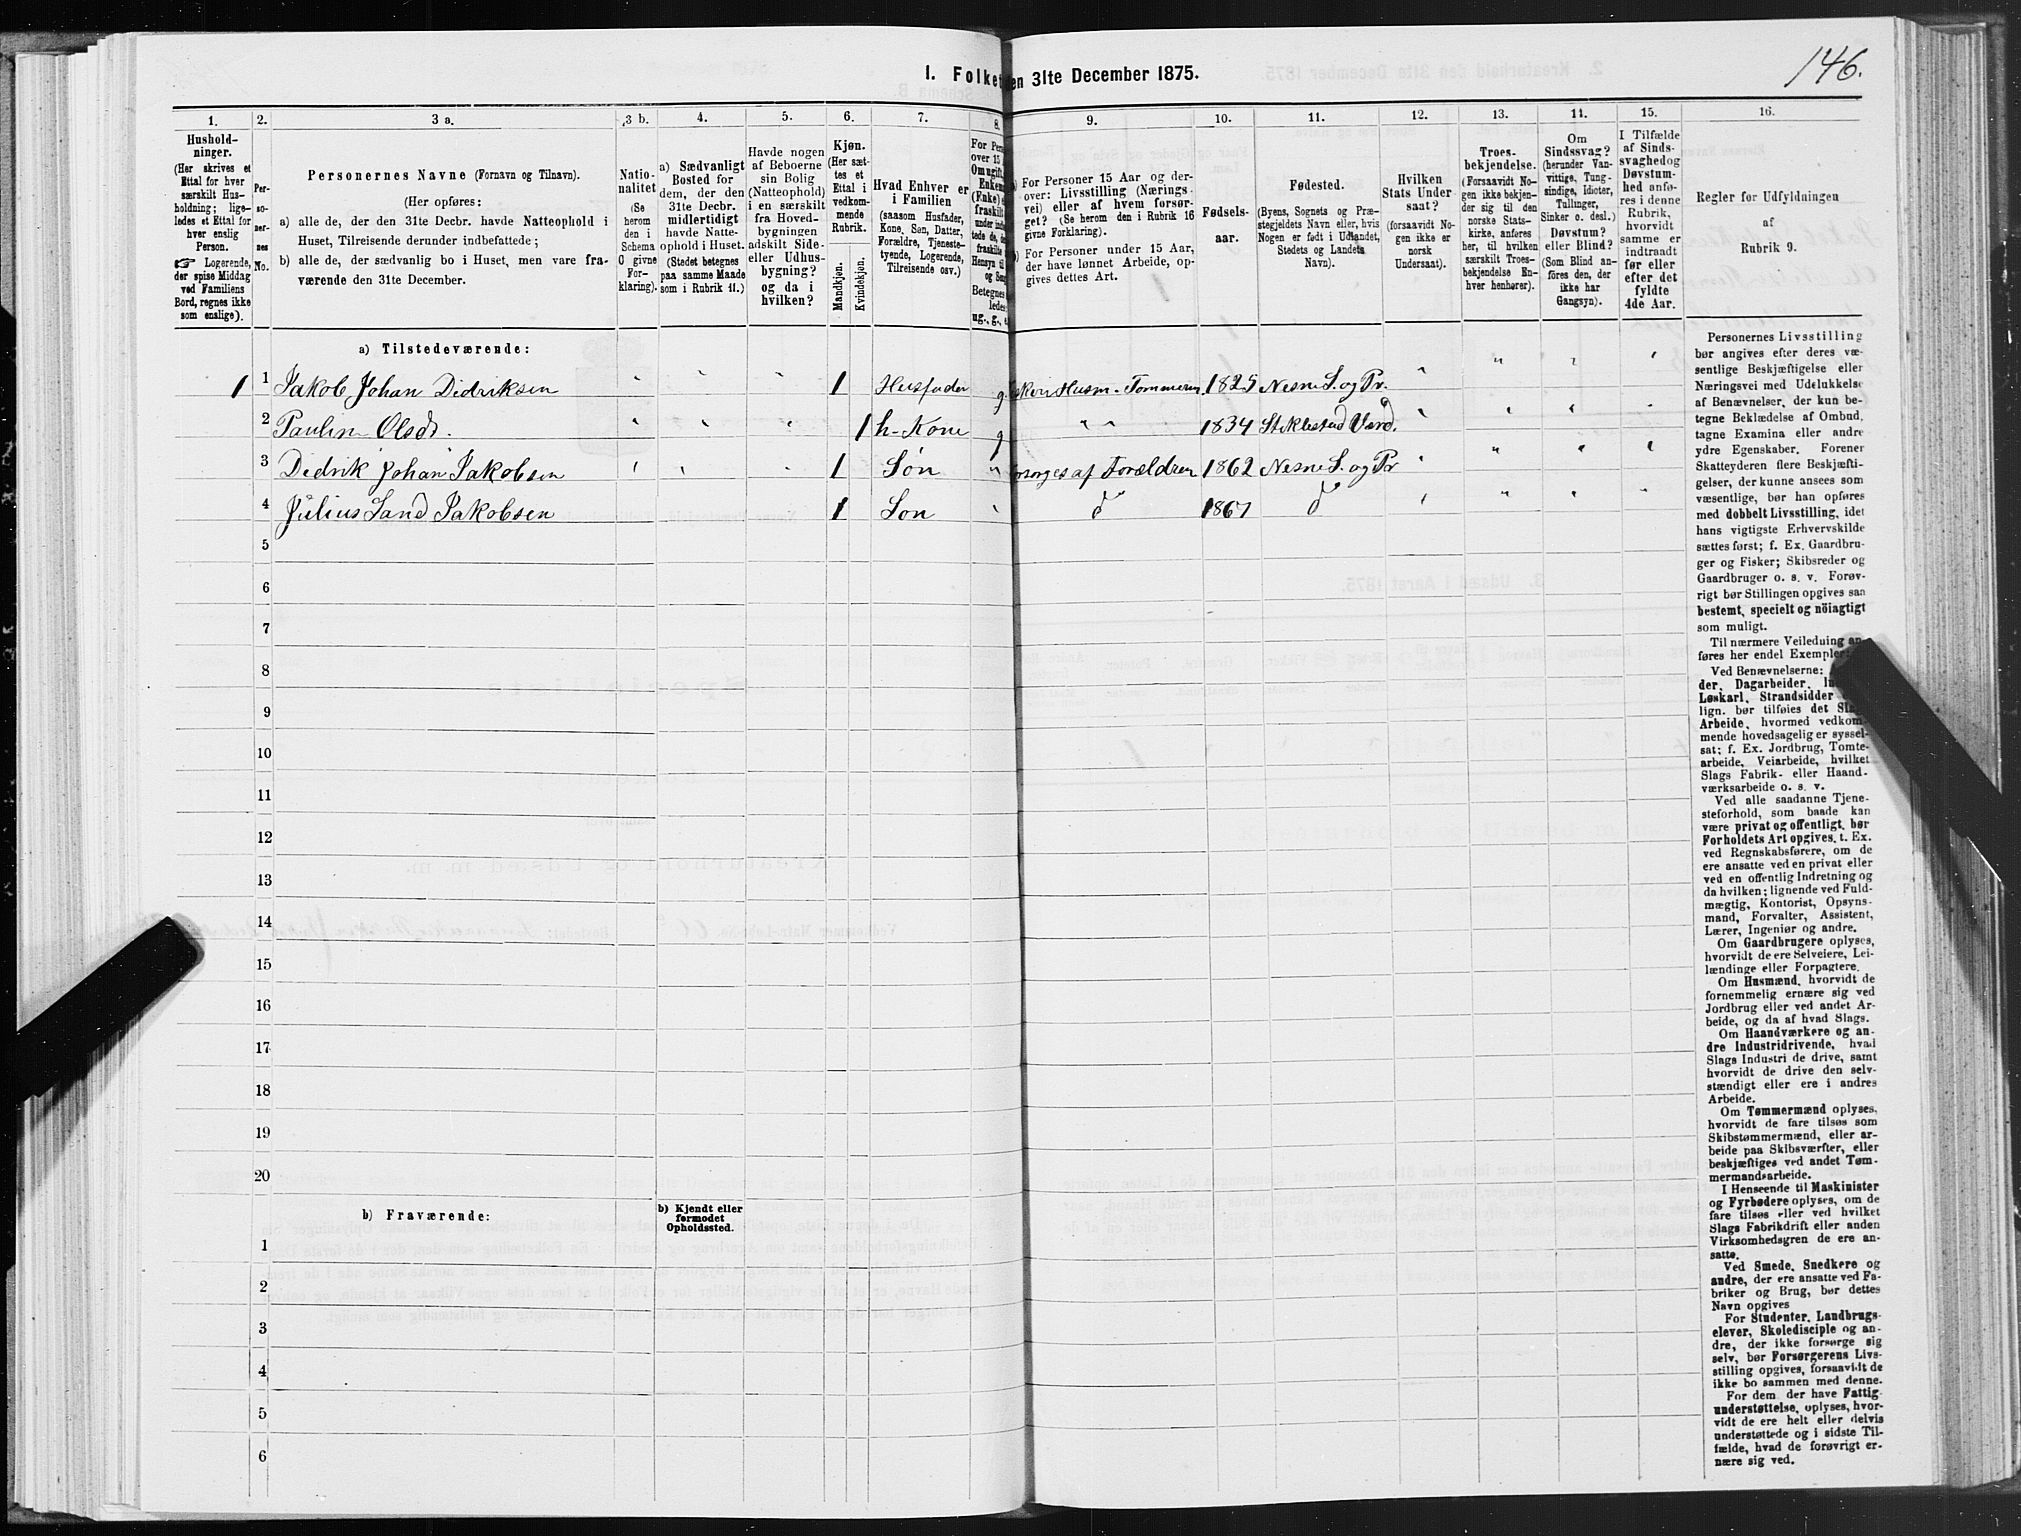 146.
I. Folket
en 31te December 1875.
1.
2.
3 a.
3 b.
4.
5.
6.
7.
8.
9.
10.
11.
12.
13.
14.
15.
16.
Hushold-
ninger.
(Her skrives et
Ettal for hver
særskilt Hus-
holdning; lige-
ledes et Ettal for
hver enslig
Person.
☞ Logerende,
der spise Middag
ved Familiens
Bord, regnes ikke
som enslige).
Per-
so-
ner-
nes
No.
Personernes Navne (Fornavn og Tilnavn).
(Her opføres:
a) alle de, der den 31te Decbr. havde Natteophold i
Huset, Tilreisende derunder indbefattede;
b) alle de, der sædvanlig bo i Huset, men vare fra-
værende den 31te December.
Natio-
nalitet
(Se
herom
den i
Schema
O givne
For-
klaring).
a) Sædvanligt
Bosted for
dem, der den
31te Decbr.
midlertidigt
havde Natte-
ophold i Huset.
(Stedet betegnes
paa samme Maade
som i Rubrik 11.)
Havde nogen
af Beboerne
sin Bolig
(Natteophold)
i en særskilt
fra Hoved-
bygningen
adskilt Side-
eller Udhus-
bygning?
og da i
hvilken?
Kjøn.
(Her sæt-
tes et
Ettal i
vedkom-
mende
Rubrik.
Mandkjøn.
Kvindekjøn.
Hvad Enhver er
i Familien
(saasom Husfader,
Kone, Søn, Datter,
Forældre, Tjeneste-
tyende, Logerende,
Tilreisende osv.)
For Pers
over 15 A
Omugift,
Enkem
(Enke) e
fraskilt
under indbe
tede de, de
fraskilte
Hensyn til
og Sen
Betegnes
ledes:
ug., g., e
a) For Personer 15 Aar og der-
over: Livsstilling (Nærings-
vei) eller af hvem forsør-
get? (Se herom den i Rubrik 16
givne Forklaring).
b) For Personer under 15 Aar,
der have lønnet Arbeide, op-
gives dettes Art.
Fødsels-
aar.
Fødested.
(Byens, Sognets og Præ-
stegjeldets Navn eller, hvis
Nogen er født i Udlandet,
Stedets og Landets
Navn).
Hvilken
Stats Under-
saat?
(forsaavidt No-
gen ikke er
norsk
Undersaat).
Troes-
bekjendelse.
(Forsaavidt No-
gen ikke bekjen-
der sig til den
norske Stats-
kirke, anføres
her, til hvilken
særskilt Troes-
bekjendelse En-
hver henhører).
Om
Sindssvag?
(herunder Van-
vittige, Tung-
sindige, Idioter,
Tullinger,
Sinker o. desl.)
Døvstum?
eller Blind?
(Som Blind an-
føres den, der
ikke har
Gangsyn).
I Tilfælde
af Sinds-
svaghed og
Døvstum-
hed anfø-
res i denne
Rubrik,
hvorvidt
samme er
indtraadt
før eller
efter det
fyldte
4de Aar.
Regler for Udfyldningen
af
Rubrik 9.
a) Tilstedeværende:
1 1 Jakob Johan Didriksen " " " 1 Husfader g. Husm. Tommerm 1825 Nesne S. og Pr. " " " "
2 Paulin Olsdr. " " " 1 h-Kone g " " 1834 Stiklestad Værd. " " " "
3 Didrik Johan Jakobsen " " " 1 Søn " orsorges af Forældren 1862 Nesne S. og Pr " " " "
4 Julius Sand Jakobsen 1 Son " d 1867 d " " " "
5
6
7
8
9
10
11
12
13
14
15
16
17
18
19
20
b) Fraværende:
b) Kjendt eller
formodet
Opholdssted.
1
2
3
4
5
6
Personernes Livsstilling
bør angives efter deres væ-
sentlige Beskjæftigelse eller
Næringsvei med Udelukkelse
af Benævnelser, der kun be-
tegne Beklædelse af Ombud,
tagne Examina eller andre
ydre Egenskaber. Forener
Skatteyderen flere Beskjæfti-
gelser, der kunne ansees som
væsentlige, bør han opføres
med dobbelt Livsstilling, idet
hans vigtigste Erhvervskilde
sættes først; f. Ex. Gaardbru-
ger og Fisker; Skibsreder og
Gaardbruger o. s. v. Forøv-
rigt bør Stillingen opgives saa
bestemt, specielt og nöiagtigt
som muligt.
Til nærmere Veiledning an-
føres her endel Exempler:
Ved Benævnelserne:
der, Dagarbeider, In
Løskarl, Strandsidder
lign. bør tilføies det Slag
Arbeide, hvormed vedkom-
mende hovedsagelig er syssel-
sat; f. Ex. Jordbrug, Tomte-
arbeide, Veiarbeide, hvilket
Slags Fabrik- eller Haand-
værksarbeide o. s. v.
Ved alle saadanne Tjene-
steforhold, som baade kan
være privat og offentligt, bør
Forholdets Art opgives, t. Ex.
ved Regnskabsførere, om de
ere ansatte ved en privat eller
ved en offentlig Indretning og
da hvilken; lignende ved Fuld-
mægtig, Kontorist, Opsyns-
mand, Forvalter, Assistent,
Lærer, Ingeniør og andre.
Om Gaardbrugere oplyses,
hvorvidt de ere Selveiere, Lei-
lændinge eller Forpagtere.
Om Husmænd, hvorvidt de
fornemmelig ernære sig ved
Jordbrug eller ved andet Ar-
beide, og da af hvad Slags.
Om Haandværkere og an-
dre Industridrivende, hvad
Slags Industri de drive, samt
hvorvidt de drive den selv-
stændigt eller ere i andres
Arbeide.
Om Tømmermænd oplyses,
hvorvidt de fare tilsøs som
Skibstømmermænd, eller ar-
beide paa Skibsværfter, eller
beskjæftiges ved andet Tøm-
mermandsarbeide.
I Henseende til Maskinister
og Fyrbødere oplyses, om de
fare tilsøs eller ved hvilket
Slags Fabrikdrift eller anden
Virksomhedsgren de ere an-
satte.
Ved Smede, Snedkere og
andre, der ere ansatte ved Fa-
briker og Brug, bør dettes
Navn opgives
For Studenter, Landbrugs-
elever, Skoledisciple og an-
dre, der ikke forsørge sig
selv, bør Forsørgerens Livs-
stilling opgives, forsaavidt de
ikke bo sammen med denne.
For dem, der have Fattig-
understøttelse, oplyses, hvor-
vidt de ere helt eller delvis
understøttede og i sidste Til-
fælde, hvad de forøvrigt er-
nære sig ved.